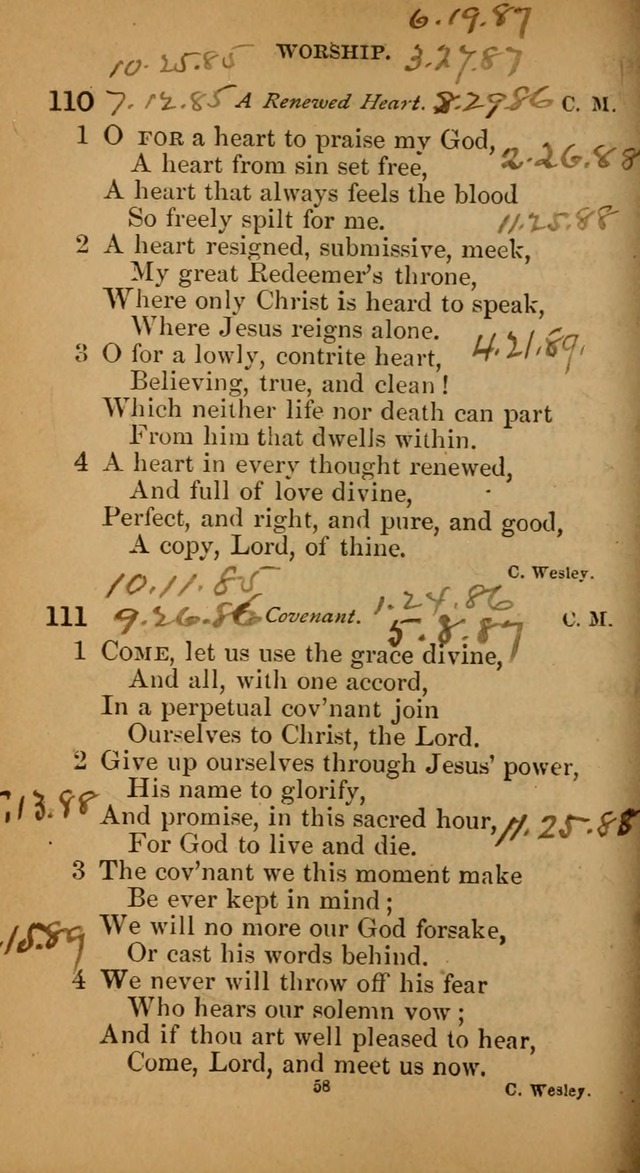 6.19.87
WORSHIP.
10.25.85 3.27.87
110 7.12.85 A Renewed Heart. 8.29.86 C. M.
1 O FOR a heart to praise my God,
A heart from sin set free, 2.26.88
A heart that always feels the blood
So freely spilt for me. 11.25.88
2 A heart resigned, submissive, meek,
My great Redeemer's throne,
Where only Christ is heard to speak,
Where Jesus reigns alone.
3 O for a lowly, contrite heart, 4.21.89.
Believing, true, and clean!
Which neither life nor death can part
From him that dwells within.
4 A heart in every thought renewed,
And full of love divine,
Perfect, and right, and pure, and good,
A copy, Lord, of thine.
C. Wesley.
10.11.85 1.24.86
111 9.26.86 Covenant. 5.8.87 C. M.
1 COME, let us use the grace divine,
And all, with one accord,
In a perpetual cov'nant join
Ourselves to Christ, the Lord.
2 Give up ourselves through Jesus' power,
His name to glorify,
13.88 And promise, in this sacred hour, 11.25.88
For God to live and die.
3 The cov'nant we this moment make
Be ever kept in mind;
15.89 We will no more our God forsake,
Or cast his words behind.
4 We never will throw off his fear
Who hears our solemn vow;
And if thou art well pleased to hear,
Come, Lord, and meet us now.
58
C. Wesley.